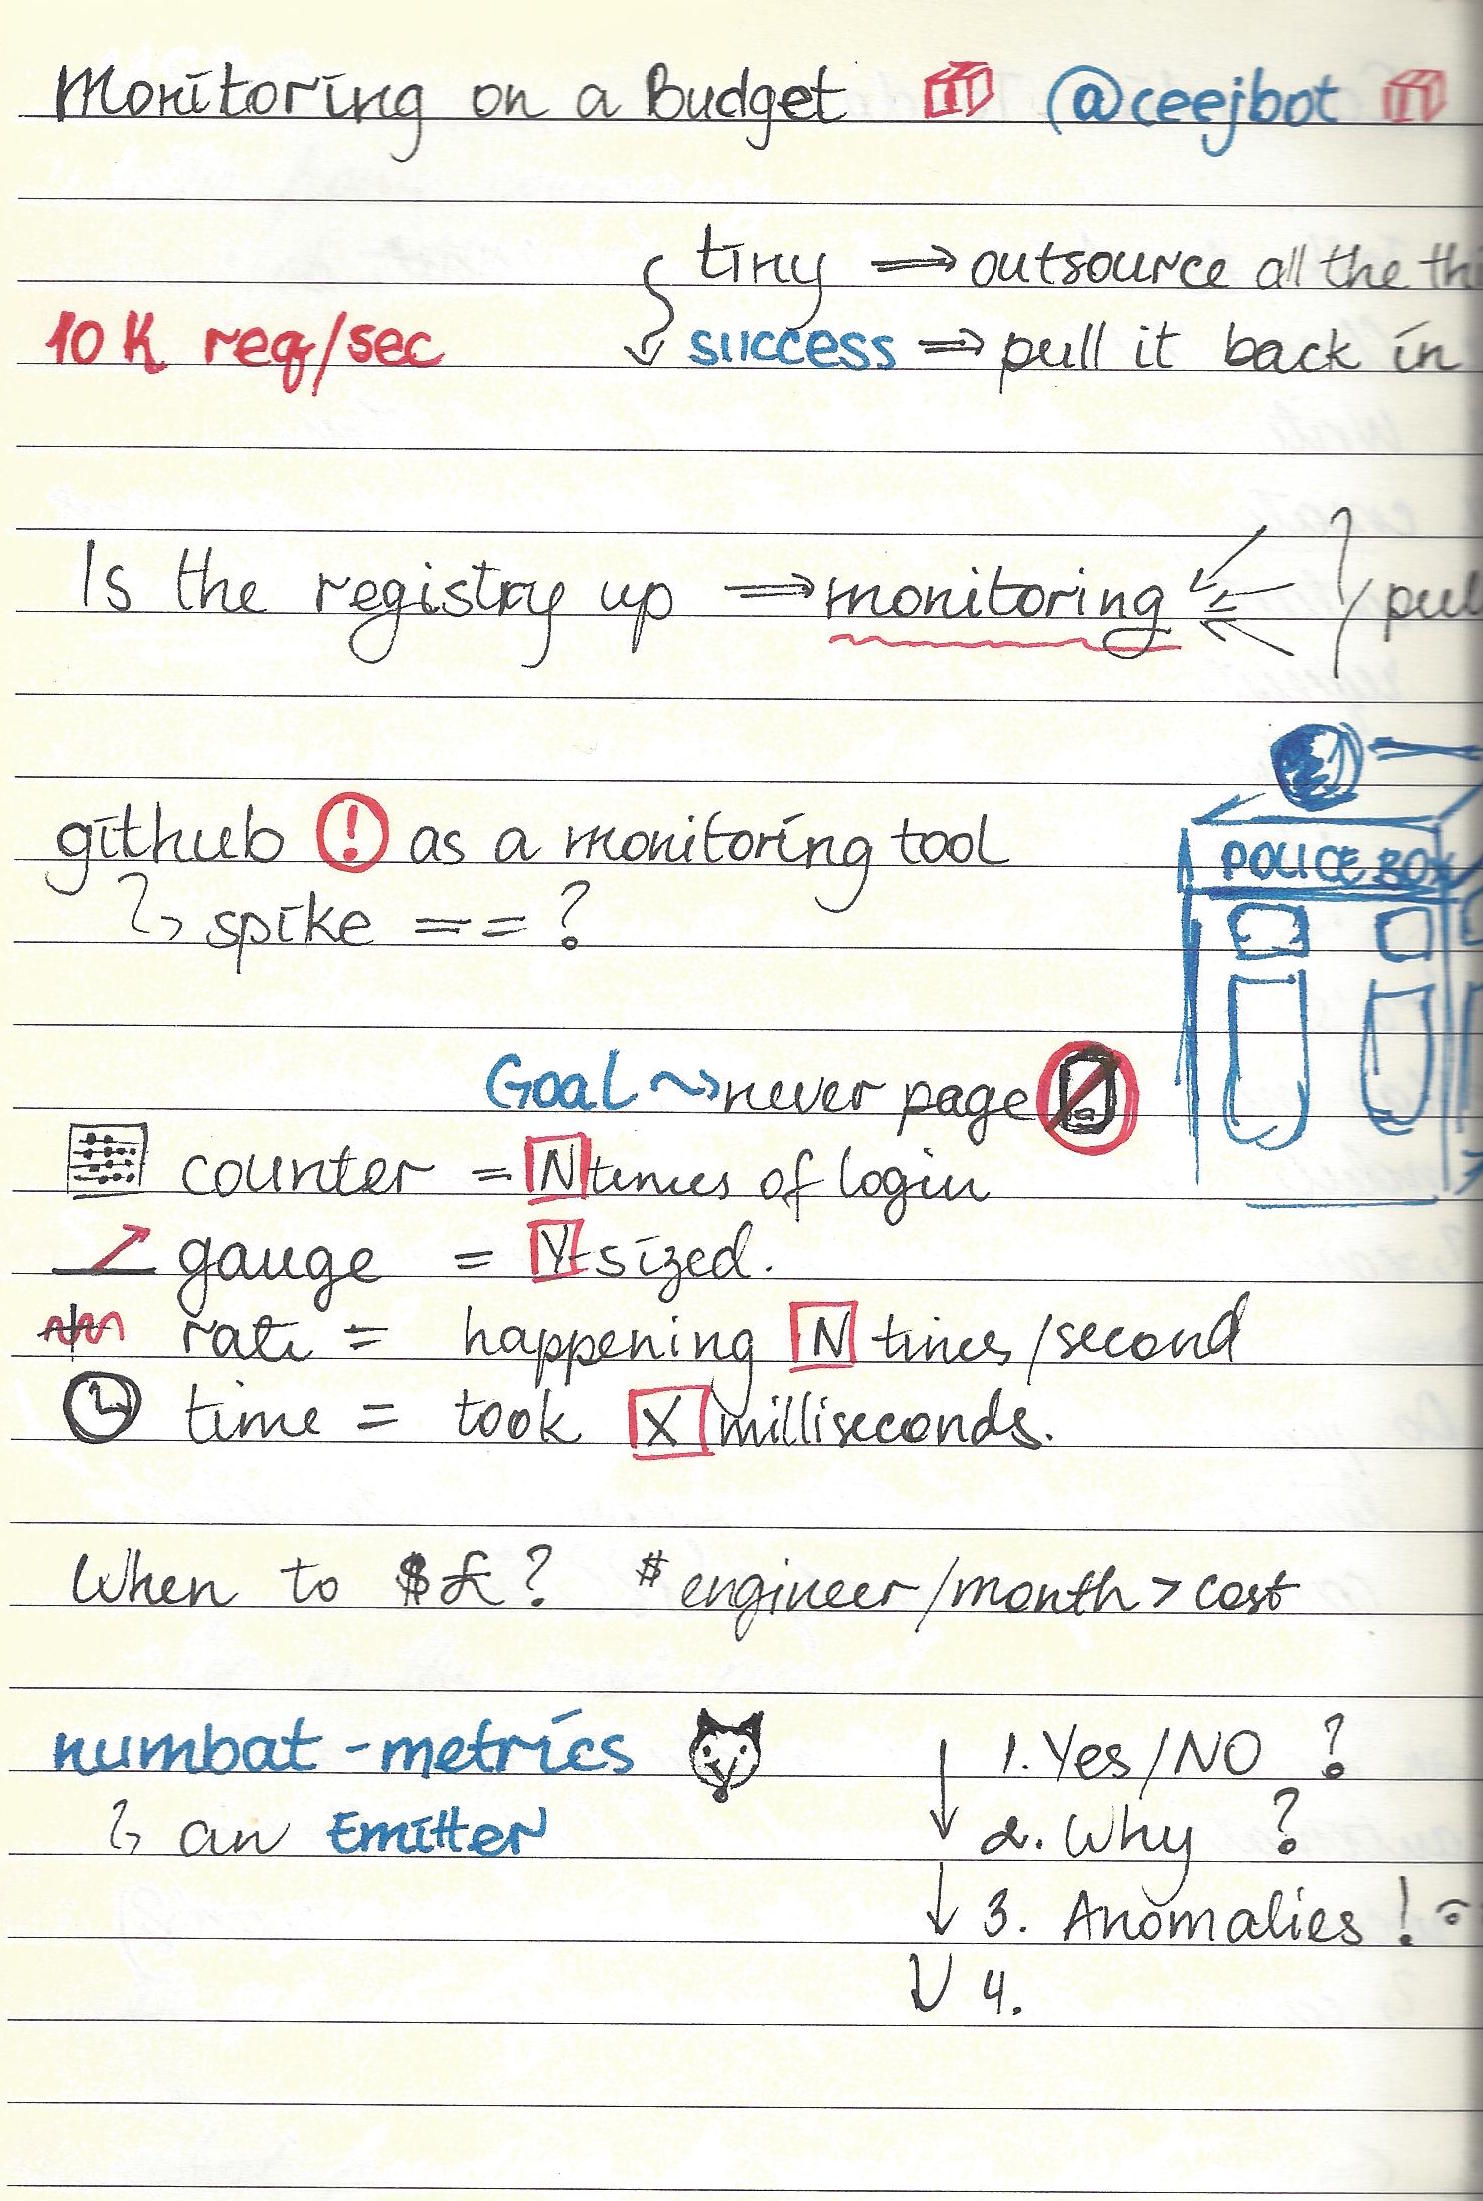 Monitoring on a Budget @ceejbot
tiny ⇒ outsource all the
10K req/sec
success ⇒ pull it back in
Is the registry up ⇒ monitoring
github ! as a monitoring tool
↳ spike == ?
POLICE BOX
Goal ~> never page
counter = N times of login
gauge = Y-sized.
rate = happening N times/second
time = took X milliseconds.
When to $£? $ engineer/month > cost
numbat-metrics
↳ an Emitter
↓ 1. Yes/NO ?
2. Why ?
↓ 3. Anomalies !
↓ 4.